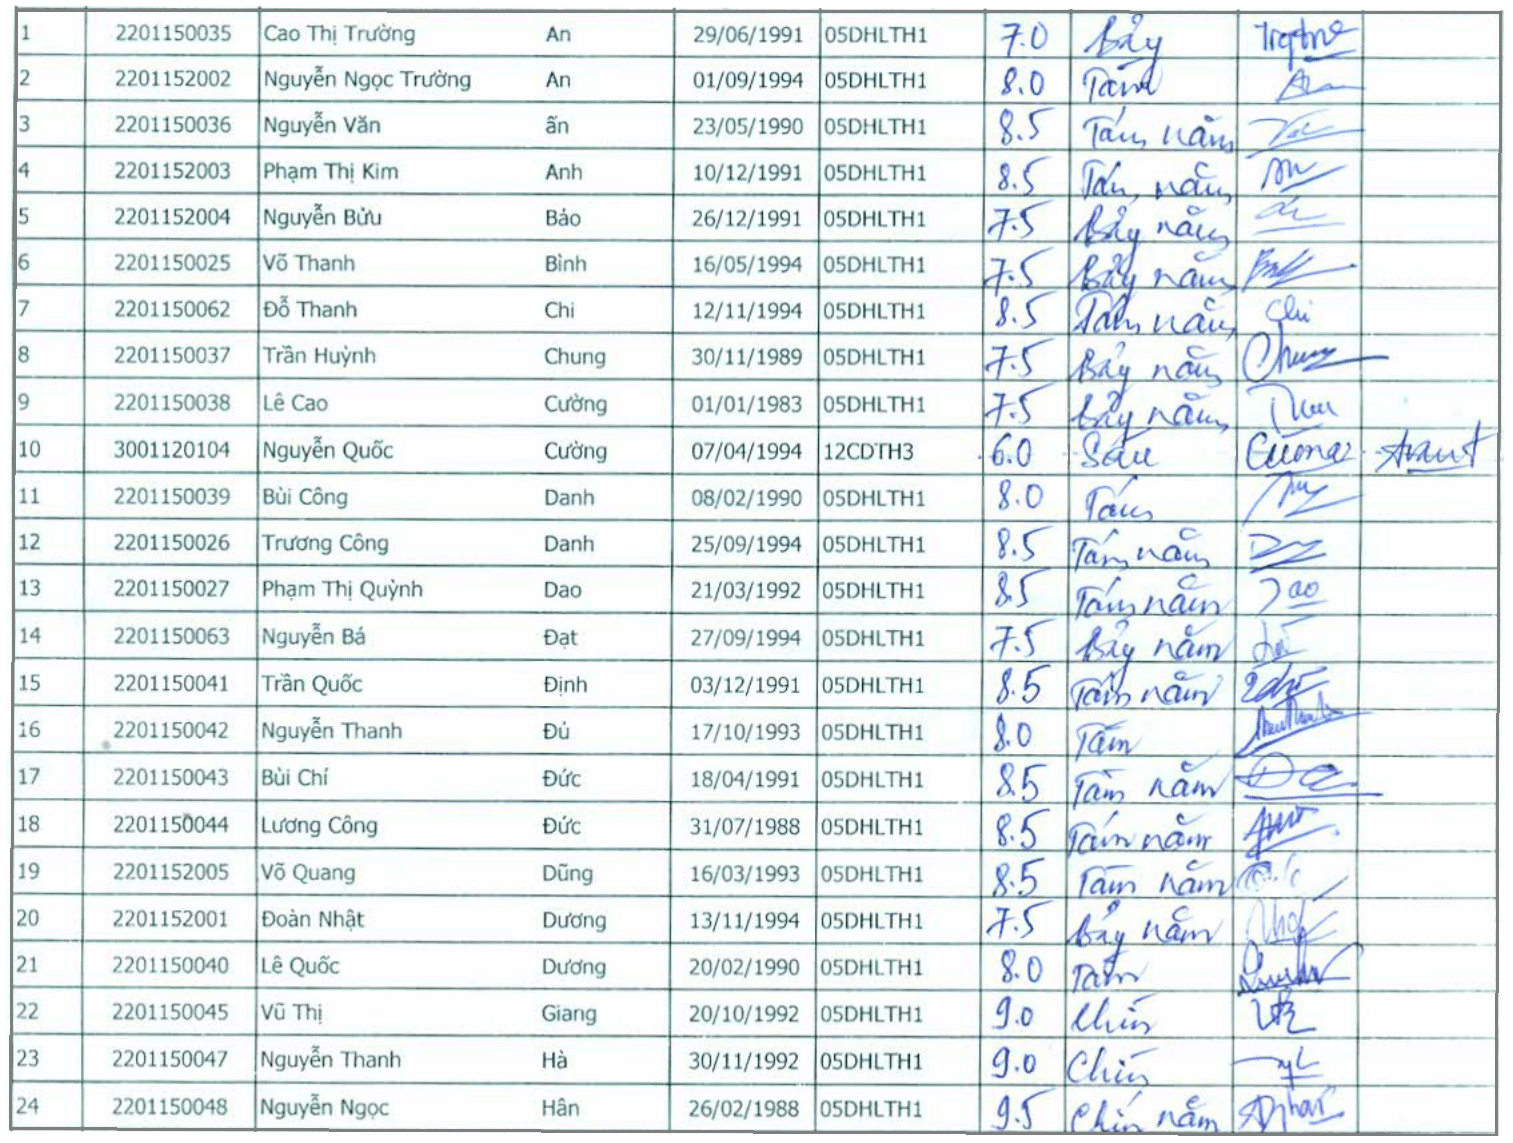 1 2201150035 Cao Thị Trường An 29/06/1991 05DHLTH1 7.0 Bảy
2 2201152002 Nguyễn Ngọc Trường An 01/09/1994 05DHLTH1 8.0 Tám
3 2201150036 Nguyễn Văn ấn 23/05/1990 05DHLTH1 8.5 Tám năm
4 2201152003 Phạm Thị Kim Anh 10/12/1991 05DHLTH1 8.5 Tám năm
5 2201152004 Nguyễn Bửu Bảo 26/12/1991 05DHLTH1 7.5 Bảy năm
6 2201150025 Võ Thanh Bình 16/05/1994 05DHLTH1 7.5 Bảy năm
7 2201150062 Đỗ Thanh Chi 12/11/1994 05DHLTH1 8.5 Tám năm Chi
8 2201150037 Trần Huỳnh Chung 30/11/1989 05DHLTH1 7.5 Bảy năm Chung
9 2201150038 Lê Cao Cường 01/01/1983 05DHLTH1 7.5 Bảy năm
10 3001120104 Nguyễn Quốc Cường 07/04/1994 12CDTH3 6.0 Sáu
11 2201150039 Bùi Công Danh 08/02/1990 05DHLTH1 8.0 Tám
12 2201150026 Trương Công Danh 25/09/1994 05DHLTH1 8.5 Tám năm
13 2201150027 Phạm Thị Quỳnh Dao 21/03/1992 05DHLTH1 8.5 Tám năm Dao
14 2201150063 Nguyễn Bá Đạt 27/09/1994 05DHLTH1 7.5 Bảy năm
15 2201150041 Trần Quốc Định 03/12/1991 05DHLTH1 8.5 Tám năm
16 2201150042 Nguyễn Thanh Đủ 17/10/1993 05DHLTH1 8.0 Tám
17 2201150043 Bùi Chí Đức 18/04/1991 05DHLTH1 8.5 Tám năm
18 2201150044 Lương Công Đức 31/07/1988 05DHLTH1 8.5 Tám năm
19 2201152005 Võ Quang Dũng 16/03/1993 05DHLTH1 8.5 Tám năm
20 2201152001 Đoàn Nhật Dương 13/11/1994 05DHLTH1 7.5 Bảy năm
21 2201150040 Lê Quốc Dương 20/02/1990 05DHLTH1 8.0 Tám
22 2201150045 Vũ Thị Giang 20/10/1992 05DHLTH1 9.0 Chín
23 2201150047 Nguyễn Thanh Hà 30/11/1992 05DHLTH1 9.0 Chín
24 2201150048 Nguyễn Ngọc Hân 26/02/1988 05DHLTH1 9.5 Chín năm